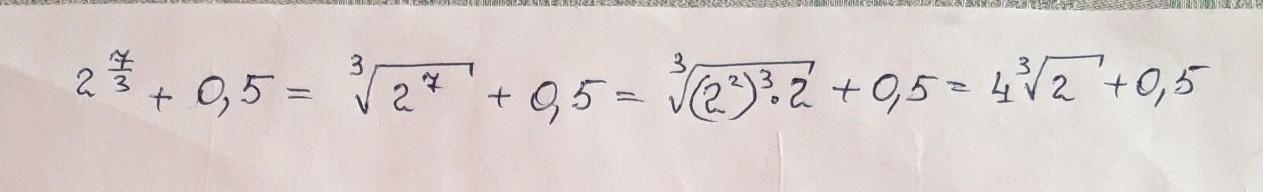 2^{7/3} + 0,5 = ∛(2^7) + 0,5 = ∛((2^2)^3 · 2) + 0,5 = 4∛2 + 0,5